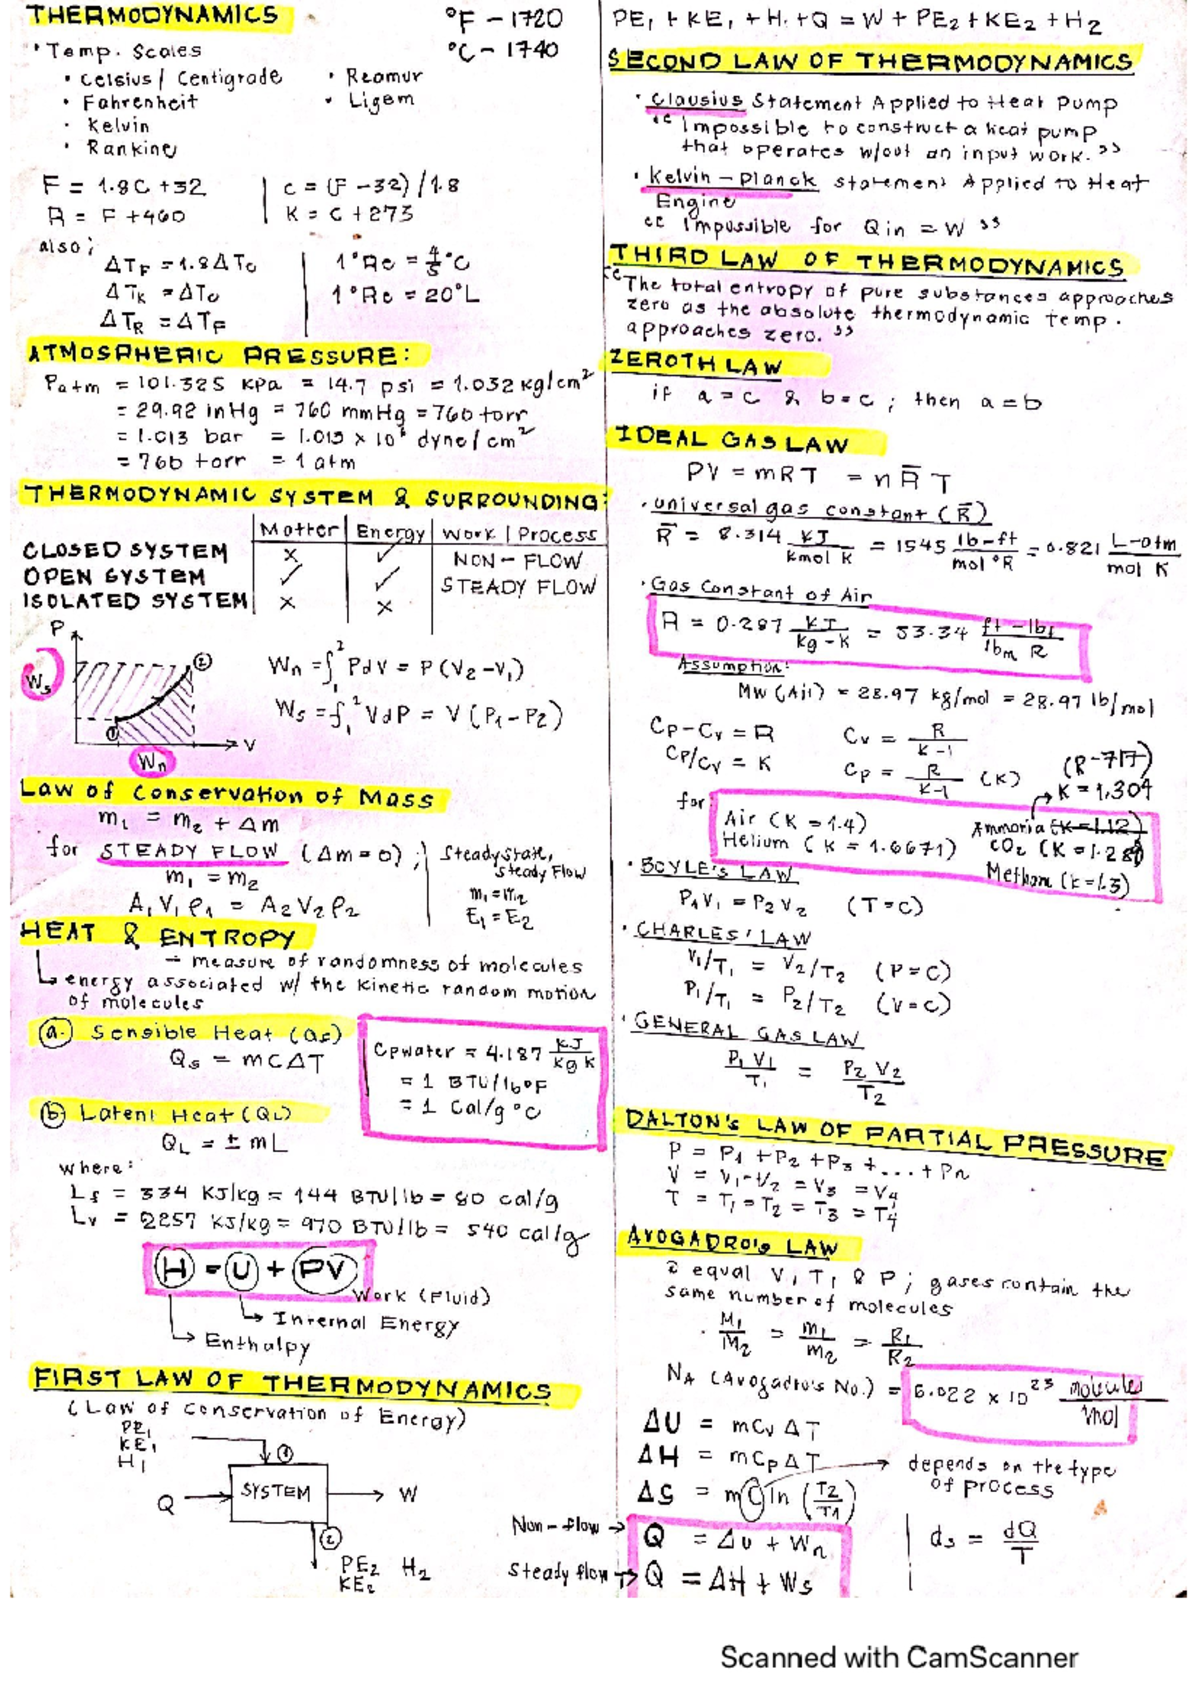 THERMODYNAMICS
°F - 1720
°C - 1740
• Temp. Scales
• Celsius / Centigrade
• Reamur
• Fahrenheit
• Ligem
• Kelvin
• Rankine
F = 1.8C +32
C = (F - 32) / 1.8
R = F +460
K = C + 273
also ;
ΔTF = 1.8ΔTC
1°Re = 4/5 °C
ΔTK = ΔTC
1°Re = 20°L
ΔTR = ΔTF
ATMOSPHERIC PRESSURE:
Patm = 101.325 KPa = 14.7 psi = 1.032 kg/cm²
= 29.92 inHg = 760 mmHg = 760 torr
= 1.013 bar = 1.013 x 10⁶ dyne/cm²
= 760 torr = 1 atm
THERMODYNAMIC SYSTEM & SURROUNDING:
Matter | Energy | Work | Process
CLOSED SYSTEM x ✓ NON - FLOW
OPEN SYSTEM ✓ ✓ STEADY FLOW
ISOLATED SYSTEM x x
P
②
Ws
①
V
Wn
Wn = ∫₁² PdV = P (V2 - V1)
Ws = -∫₁² VdP = V (P1 - P2)
Law of Conservation of Mass
m1 = m2 + Δm
for STEADY FLOW (Δm = 0) ;
m1 = m2
A1 V1 ρ1 = A2 V2 ρ2
Steady State,
Steady Flow
m1 = m2
E1 = E2
HEAT & ENTROPY
→ measure of randomness of molecules
energy associated w/ the kinetic random motion
of molecules
(a.) Sensible Heat (Qs)
Qs = mCΔT
Cpwater = 4.187 KJ/kg K
= 1 BTU/lb°F
= 1 Cal/g °C
(b) Latent Heat (QL)
QL = ± mL
where:
Lf = 334 KJ/kg = 144 BTU/lb = 80 cal/g
Lv = 2257 KJ/kg = 970 BTU/lb = 540 cal/g
H = U + PV
Work (Fluid)
Internal Energy
Enthalpy
FIRST LAW OF THERMODYNAMICS
(Law of Conservation of Energy)
PE1
KE1
H1
①
Q → SYSTEM → W
②
PE2 H2
KE2
PE1 + KE1 + H1 + Q = W + PE2 + KE2 + H2
SECOND LAW OF THERMODYNAMICS
• Clausius Statement Applied to Heat Pump
“ Impossible to construct a heat pump
that operates w/out an input work. ”
• Kelvin - Planck statement Applied to Heat
Engine
“ Impossible for Qin = W ”
THIRD LAW OF THERMODYNAMICS
“ The total entropy of pure substances approaches
zero as the absolute thermodynamic temp.
approaches zero. ”
ZEROTH LAW
if a = c & b = c ; then a = b
IDEAL GAS LAW
PV = mRT = nR̄T
• universal gas constant (R̄)
R̄ = 8.314 KJ/kmol K = 1545 lb-ft/mol °R = 0.821 L-atm/mol K
• Gas Constant of Air
R = 0.287 KJ/kg-K = 53.34 ft-lbf/lbm R
Assumption:
MW (Air) = 28.97 kg/mol = 28.97 lb/mol
Cp - Cv = R
Cv = R/K-1
Cp/Cv = K
Cp = R/K-1 (K)
(R-717)
K = 1.304
for
Air (K = 1.4)
Ammonia (K = 1.12)
Helium (K = 1.6671)
CO2 (K = 1.289)
Methane (K = 1.3)
• BOYLE'S LAW
P1V1 = P2V2 (T = C)
• CHARLES' LAW
V1/T1 = V2/T2 (P = C)
P1/T1 = P2/T2 (V = C)
• GENERAL GAS LAW
P1 V1/T1 = P2 V2/T2
DALTON'S LAW OF PARTIAL PRESSURE
P = P1 + P2 + P3 + ... + Pn
V = V1 = V2 = V3 = V4
T = T1 = T2 = T3 = T4
AVOGADRO's LAW
equal V, T, & P; gases contain the
same number of molecules
M1/M2 = m1/m2 = R1/R2
NA (Avogadro's No.) = 6.022 x 10²³ molecules/mol
ΔU = mCv ΔT
ΔH = mCp ΔT
depends on the type
of process
ΔS = mC ln (T2/T1)
Non - flow → Q = ΔU + Wn
Steady flow → Q = ΔH + Ws
ds = dQ/T
Scanned with CamScanner